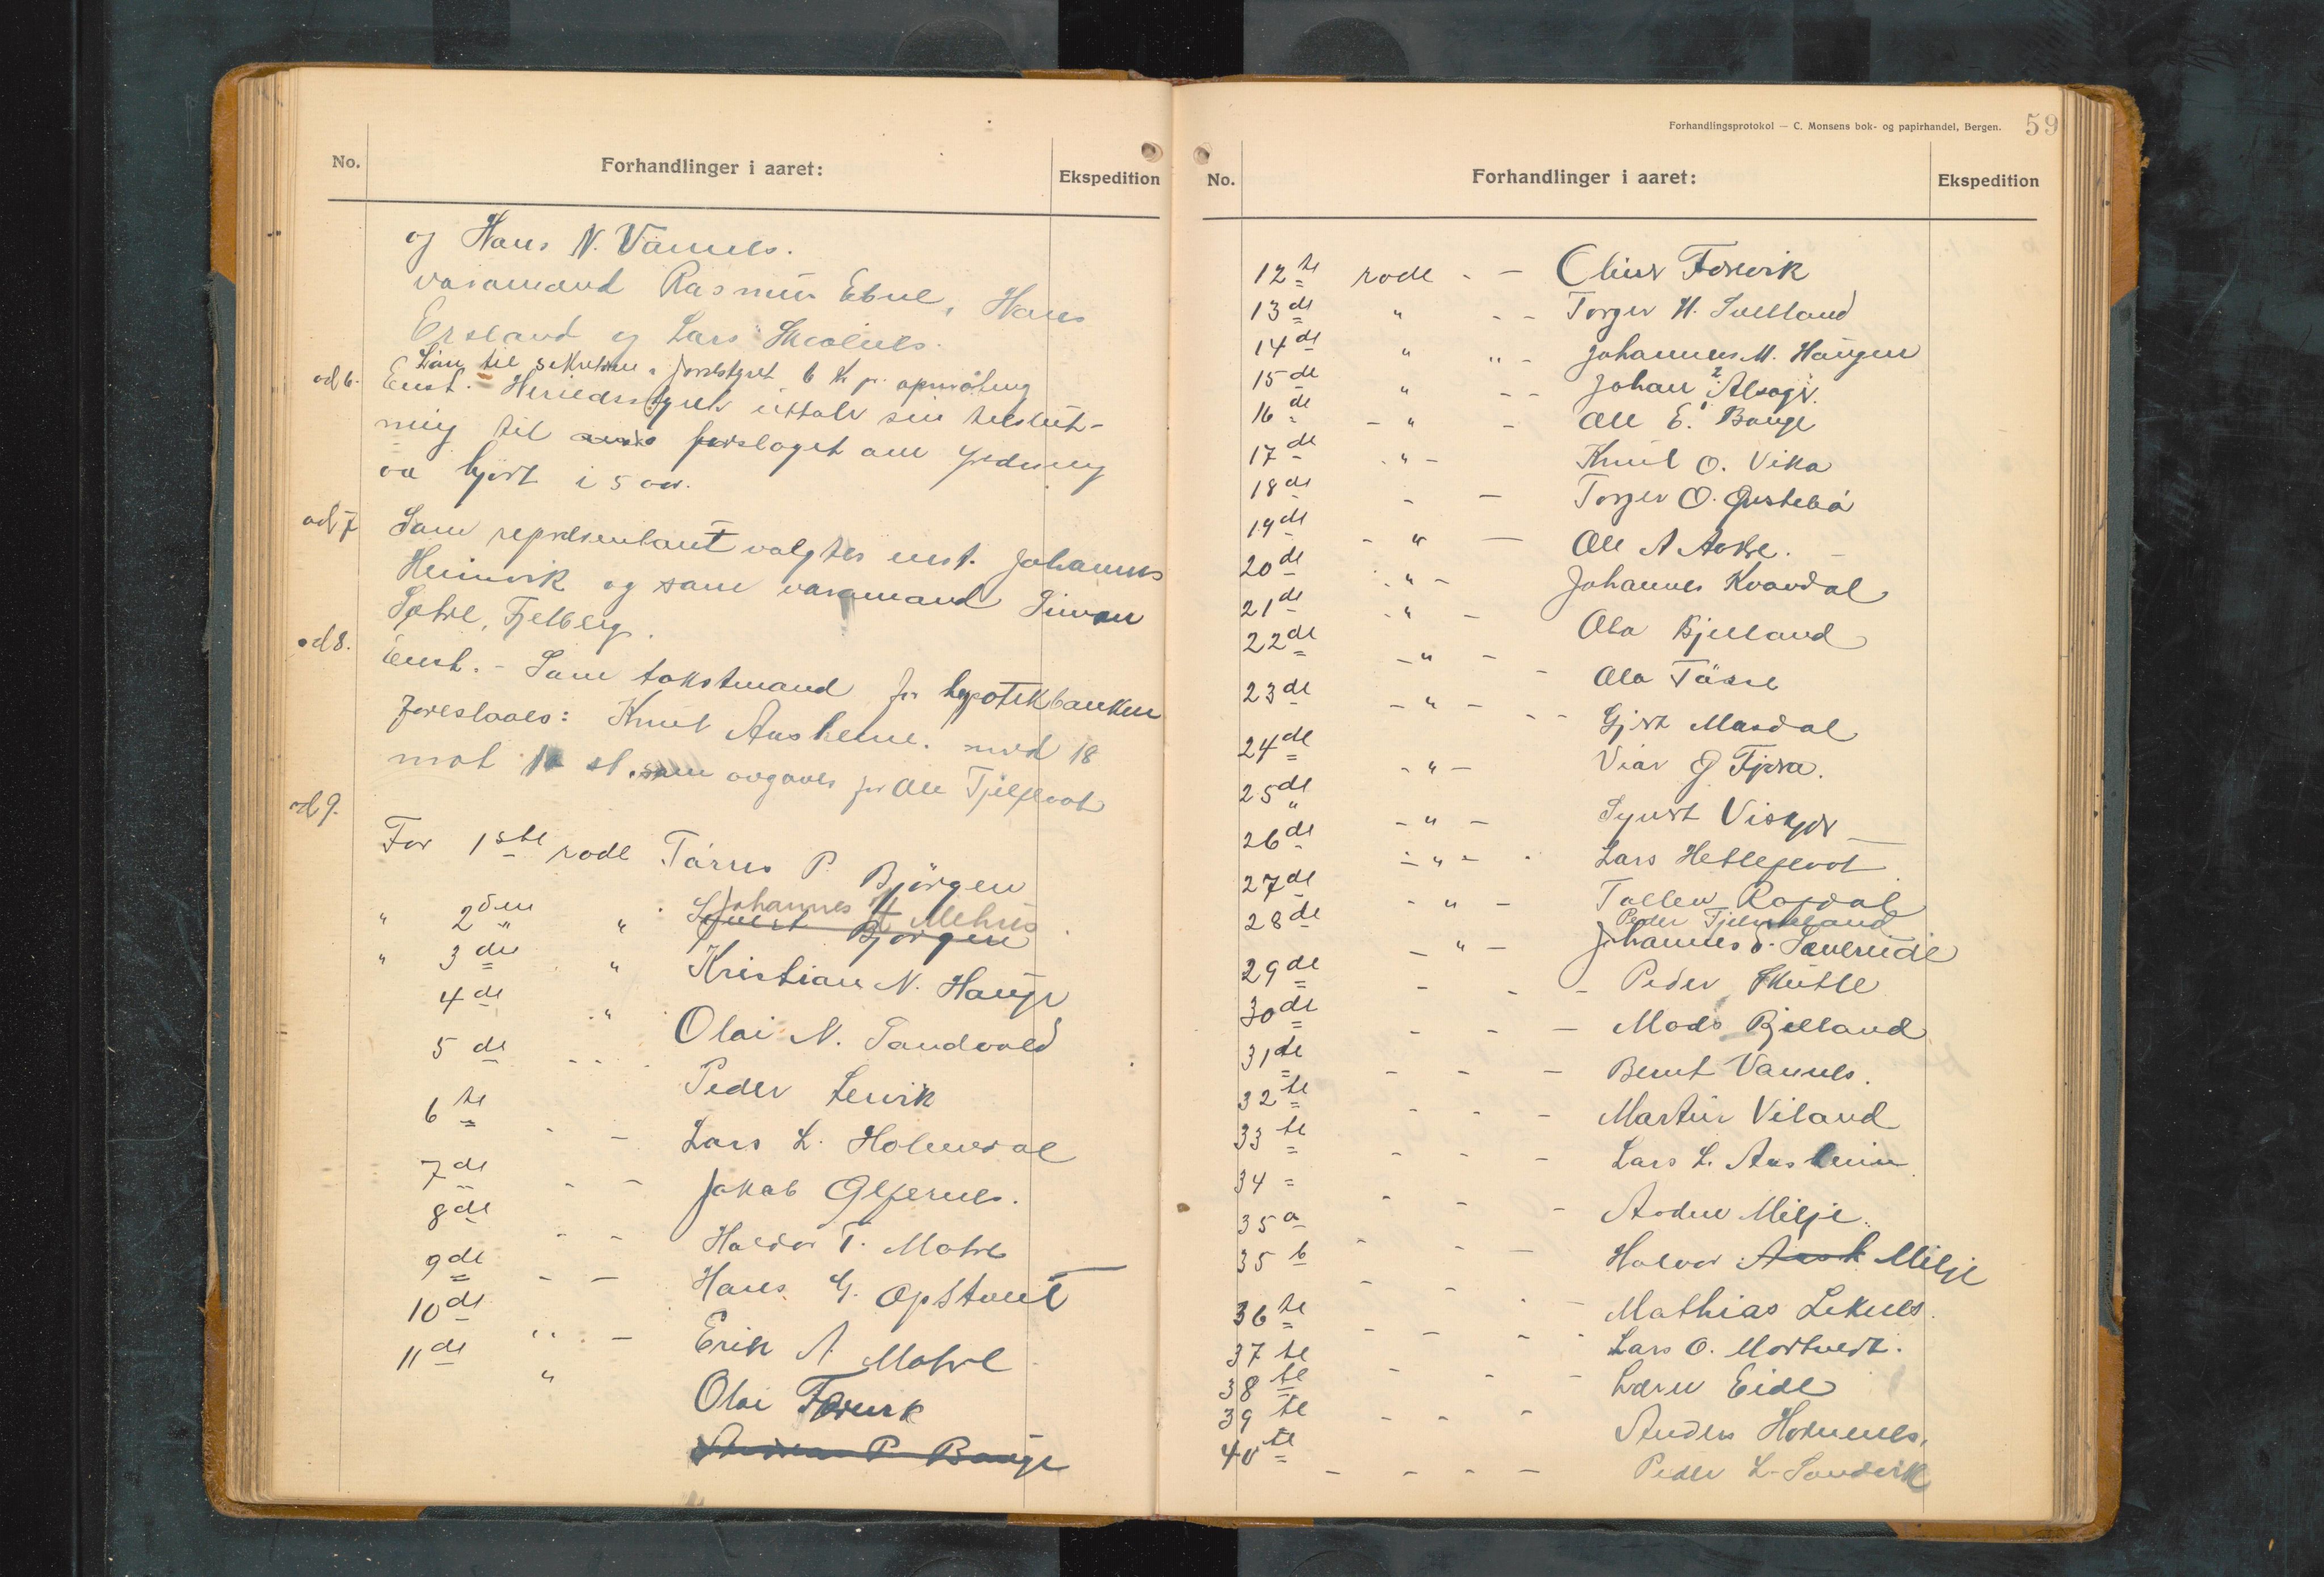 No.
Forhandlinger i aaret:
Ekspedition
og Hans N. Vannes.
varamand Rasmus Ebne, Hans
Ersland og Lars
Løn til sekretær i jordstyret 6 kr pr. opmåling
ad 6.
Enst. Heriedsstyret uttaler sin tilslut-
ning til forslaget om fredning
av hjort i 5 aar.
ad 7
Som repræsentant valgtes enst. Johannes
Heimvik og som varamand Simon
Sætre, Fjelberg.
ad 8.
Enst. - Som takstmand for hypotekbanken
foreslaaes: Knut Ausheim. med 18
mot st. som avgaves for Ole Tjelflaat
ad 9.
For 1ste rode Tørres P. Bjørgen
Johannes Mehus
" 2den " " Sjurt Bjørgen
" 3die " Kristian N. Hauge
4de " Olai N. Tandvald
5de - - Peder Lervik
6te - - Lars L. Holmedal
7de - - Jakab Olfernes.
8de - - Haldor T. Matre
9de - - Hans G. Opstveit
10de " - Erik A. Matre
11de " Olai Forvik
P Bauge
Forhandlingsprotokol — C. Monsens bok- og papirhandel, Bergen. 59
No.
Forhandlinger i aaret:
Ekspedition
12te rode - - Forvik
13de " - - Torger H. Svelland
14de " " - Johannes M. Haugen
15de " - - Johan Alsager.
16de - " - Ole E. Bauge
17de - " - Knut O. Vika
18de - - Torger O. Opstebø
19de - " - Ole A Aakre.
20de - " - Johannes Kvandal
21de - " - Ola Kjelland
22de - " - - Ola Tåsse
23de - " - - - Gjert Masdal
24de - " - Viar G Fjæra.
25de " - " - Synort
26de - " - - Lars Hetleflaat
27de - " - Tollev Ragdal
Peder
28de - " - Johannes S. Saverude
29de - - - Peder Skutle
30de - - - Mads Bjelland
31te - - - Bernt Vannes.
32te - - - Martin Viland
33te - - - Lars L. Ausheim
34 = - - - Anders Milje.
35 a - - - Halvor Milje
35 b - - - - Mathias Leknes.
36te - - - - Lars O. Mortveit.
37te - - - Eide
38te
39te - - - Anders Holmenes.
40te - - - - Peder L. Sandvik